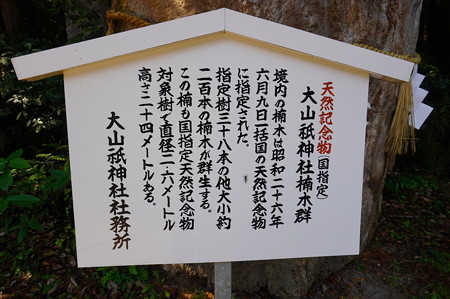 天然記念物（国指定）
大山祇神社楠木群
境内の楠木は昭和二十六年
六月九日一括国の天然記念物
に指定された。
指定樹三十八本の他大小約
二百本の楠木が群生する。
この楠も国指定天然記念物
対象樹で直径二・六メートル
高さ二十四メートルある。
大山祇神社社務所